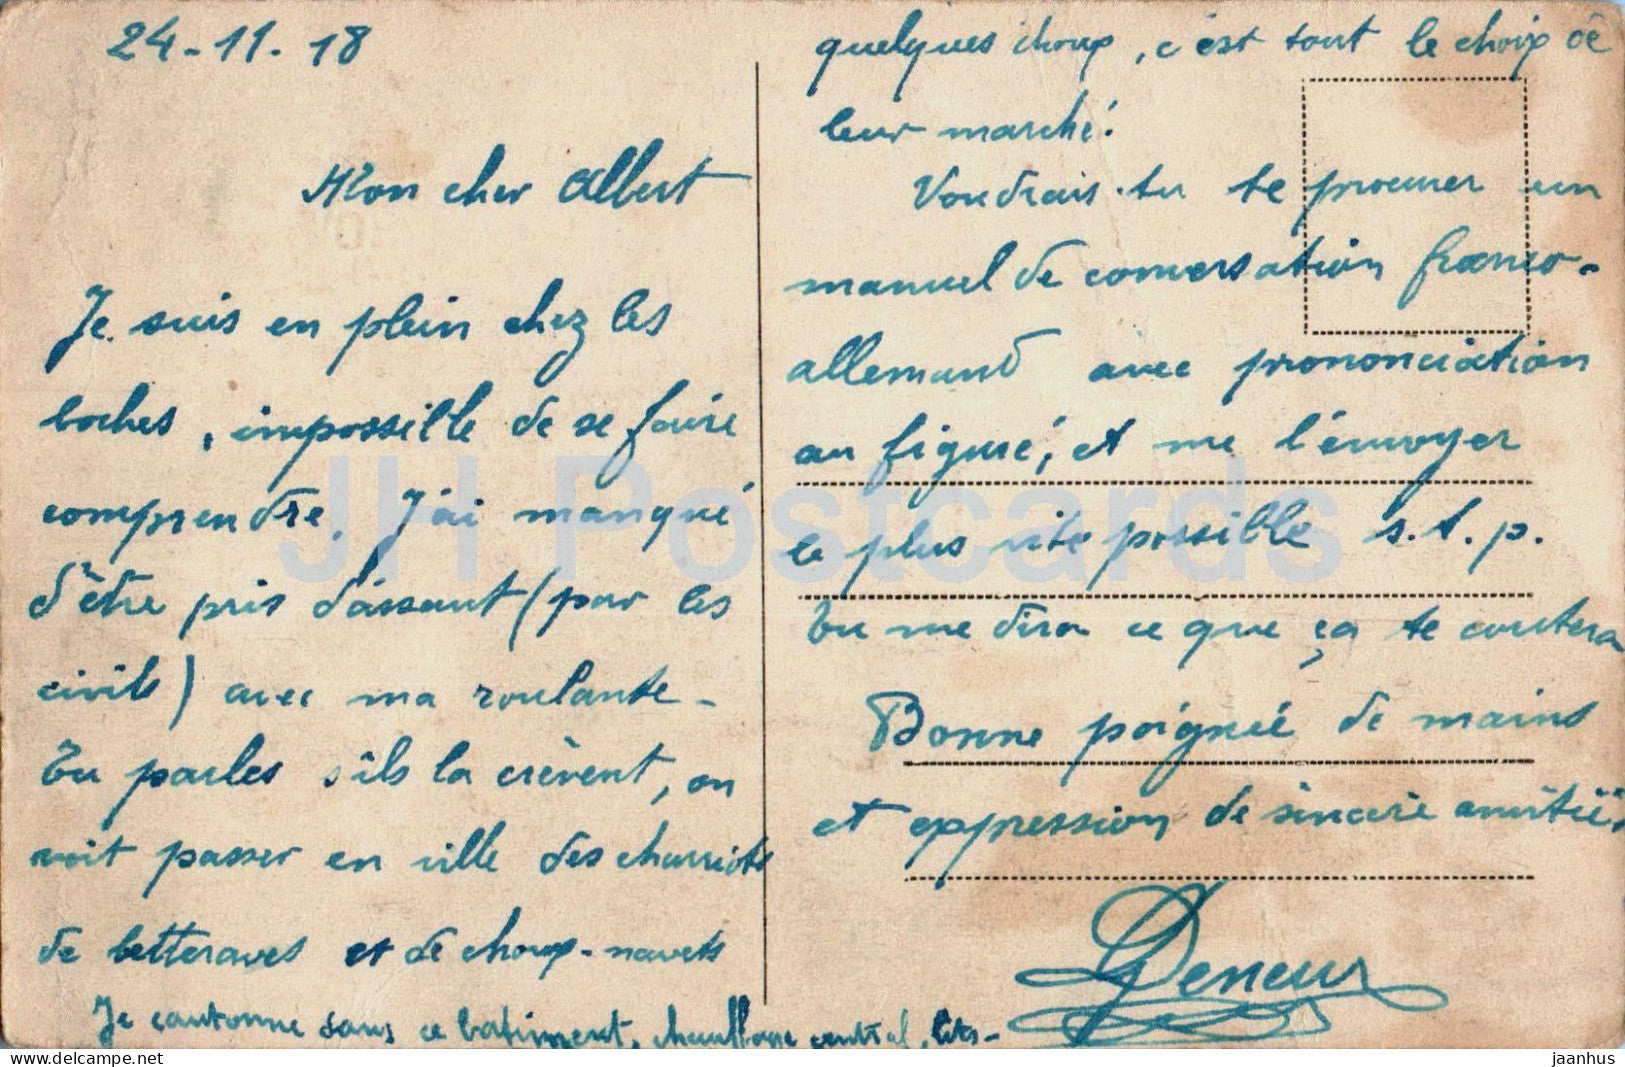 24-11-18
Mon cher Albert
Je suis en plein chez les
boches, impossible de se faire
comprendre. J'ai manqué
d'être pris d'assaut (par les
civils) avec ma roulante-
Tu parles s'ils la crèvent, on
voit passer en ville des charriots
de betteraves et de choux-navets
Je cantonne dans ce bâtiment, chauffage central, lits-
quelques choux, c'est tout le choix de
leur marché.
Voudrais-tu te procurer un
manuel de conversation franco-
allemand avec prononciation
au figuré, et me l'envoyer
le plus vite possible s.t.p.
Tu me dira ce que ça te coutera
Bonne poignée de mains
et expression de sincère amitiée.
Deneux
JH Postcards
jaanhus